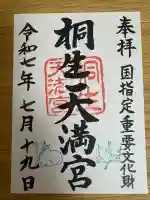 奉拝 国指定重要文化財
桐生天満宮
令和七年 七月 十九日